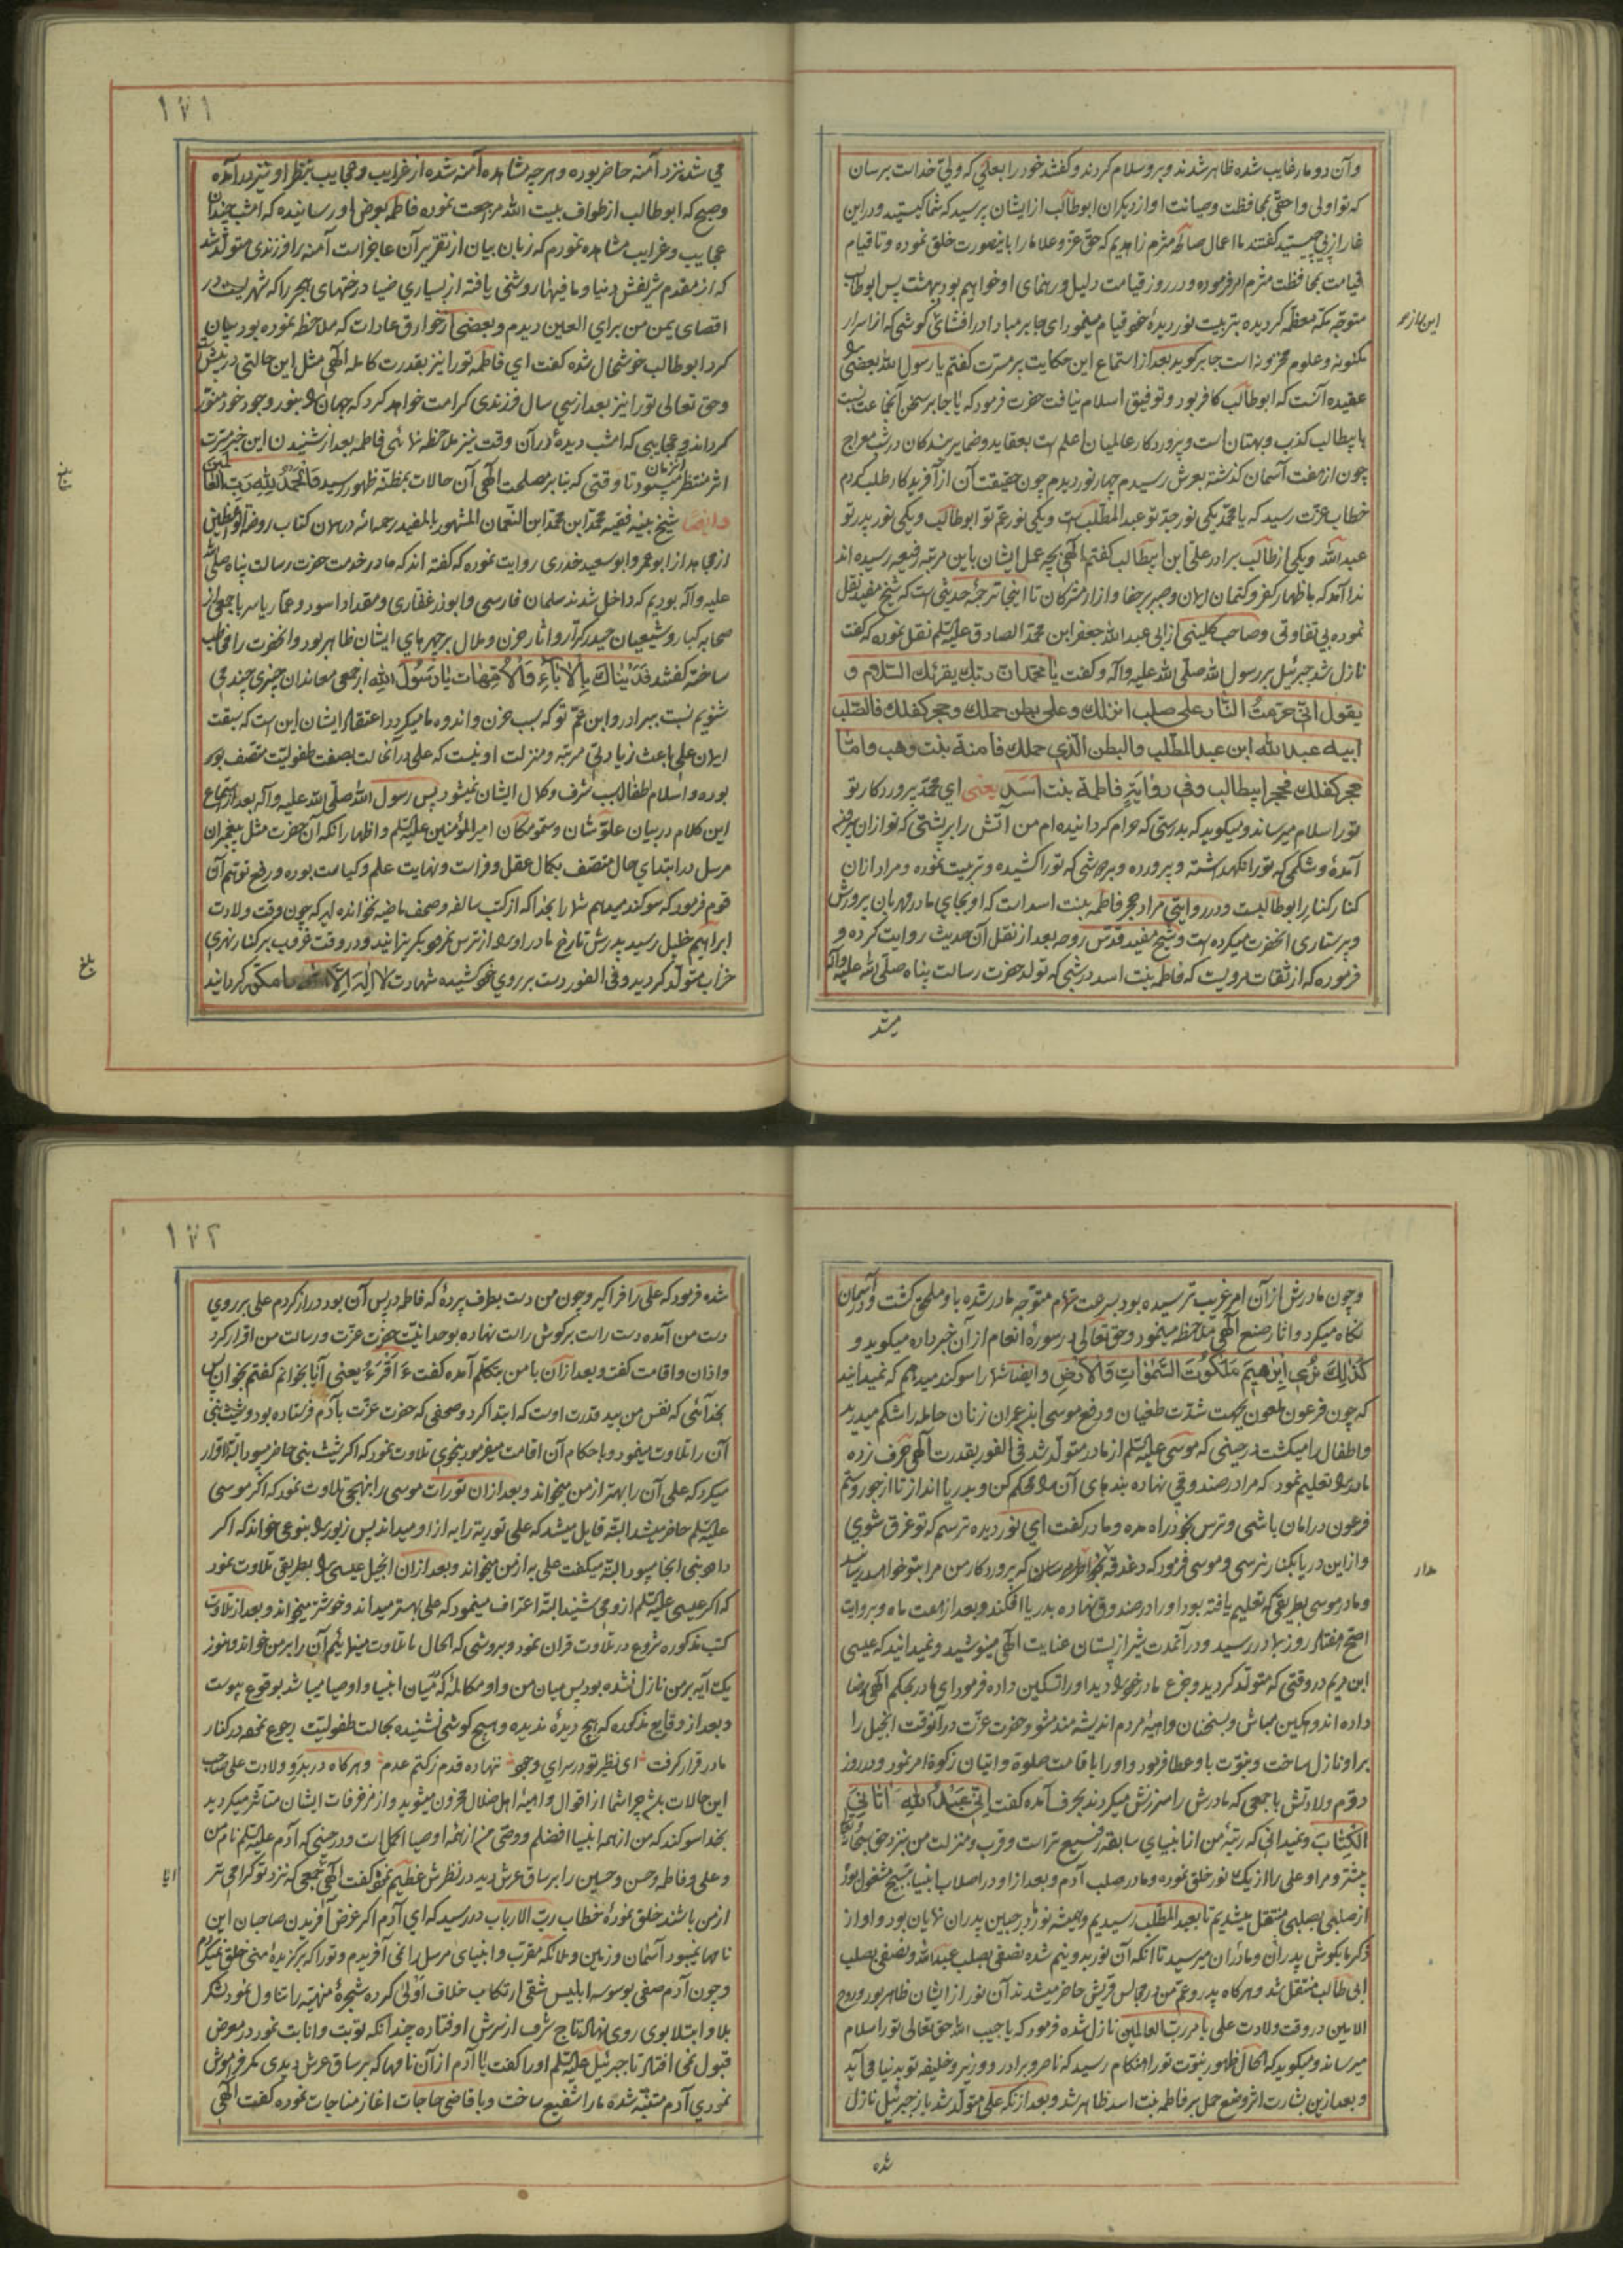 وآن دو مار غایب شده ظاهر شدند و برو سلام کردند و گفتند خود را بعلی که ولی خداست برسان
که تو اولی و احقی بمحافظت و صیانت او از دیگران ابوطالب از ایشان پرسید که شما کیستید و در این
غار از پی چیستید گفتند ما اعمال صالحهٔ مثرم زاهدیم که حق عز و علا ما را باینصورت خلق نموده و تا قیام
قیامت بمحافظت مثرم امر فرموده و در روز قیامت دلیل و رهنمای او خواهیم بود ببهشت پس ابوطالب
متوجه مکه معظمه گردیده بتربیت نور دیدهٔ خود قیام مینمود ای جابر مبادا در افشای گوشی که از اسرار
مکنونه و علوم مخزونه است جابر گوید بعد از استماع این حکایت پر مسرت گفتم یا رسول الله بعضی را
عقیده آنست که ابوطالب کافر بود و توفیق اسلام نیافت حضرت فرمود که یا جابر سخن آنجماعت نسبت
بابیطالب کذب و بهتان است و پروردکار عالمیان اعلم است بعقاید و ضمایر بندکان در شب معراج
چون از هفت آسمان گذشته بعرش رسیدم چهار نور دیدم چون حقیقت آن از آفریدکار طلب کردم
خطاب عزت رسید که یا محمد یکی نور جد تو عبدالمطلب است و یکی نور عم تو ابوطالب و یکی نور پدر تو
عبدالله و یکی از طالب برادر علی ابن ابیطالب گفتم الهی بچه عمل ایشان باین مرتبه رفیعه رسیده اند
ندا آمد که باظهار کفر و کتمان ایمان و صبر بر جفا و ازار مشرکان تا اینجا ترجمهٔ حدیثی است که شیخ مفید نقل
نموده بی تفاوتی و صاحب کلینی از ابی عبدالله جعفر ابن محمد الصادق علیه السلم نقل نموده که گفت
نازل شد جبرئیل بر رسول الله صلی الله علیه و آله و گفت یا محمد ان ربک یقرئک السلام و
یقول انی حرمت النار علی صلب انزلک و علی بطن حملک و حجر کفلک فالصلب صلب
ابیه عبد الله ابن عبد المطلب والبطن الذی حملک فآمنة بنت وهب واما
حجر کفلک فحجر ابیطالب وفی روایة فاطمة بنت اسد یعنی ای محمد پروردکار تو
تو را سلام میرساند و میکوید که بدرستی که حرام کردانیده ام من آتش را بر پشتی که تو از آن بیرون
آمدهٔ و شکمی که تو را نکهداشته و پرورده و بر حجری که تو را کشیده و تربیت نموده و مراد از آن
کنار کنار ابوطالبست و در روایتی مراد حجر فاطمه بنت اسد است که او بجای مادر مهربان پرورش
و پرستاری انحضرت میکرده است و شیخ مفید قدس روحه بعد از نقل آن حدیث روایت کرده و
فرموده که از ثقات مرویست که فاطمه بنت اسد در شبی که تولد حضرت رسالت پناه صلی الله علیه و آله
میشد
۱۷۱
می شد نزد آمنه حاضر بوده و هر چه مشاهده آمنه شده از غرایب و عجایب بنظر او نیز در آمده
و صبح که ابوطالب از طواف بیت الله مراجعت نموده فاطمه بعرض او رسانیده که امشب چندان
عجایب و غرایب مشاهده نمودم که زبان بیان از تقریر آن عاجز است آمنه را فرزندی متولد شد
که از مقدم شریفش دنیا و ما فیها روشنی یافته از بسیاری ضیا درختهای هجر را که شهریست در
اقصای یمن من برای العین دیدم و بعضی از خوارق عادات که ملاحظه نموده بود بیان
کرد ابوطالب خوشحال شده گفت ای فاطمه تو را نیز بقدرت کامله الهی مثل این حالتی در پیش است
و حق تعالی تو را نیز بعد از سی سال فرزندی کرامت خواهد کرد که جهان را بنور وجود خود منور
گرداند و عجایبی که امشب دیدهٔ در آن وقت نیز ملاحظه نمائی فاطمه بعد از شنیدن این خبر مسرت
اثر منتظر آنزمان میبود تا وقتی که بنابر مصلحت الهی آن حالات بمظنه ظهور رسید فالحمد لله رب العالمین
وایضا شیخ بینه فقیه محمد ابن محمد ابن النعمان المشهور بالمفید رحمه الله در همان کتاب روضة الواعظین
از مجاهد از ابو عمر و ابو سعید خدری روایت نموده که گفته اند که ما در خدمت حضرت رسالت پناه صلی الله
علیه و آله بودیم که داخل شدند سلمان فارسی و ابوذر غفاری و مقداد اسود و عمار یاسر با جمعی از
صحابه کبار و شیعیان حیدر کرار و اثار حزن و ملال بر چهرهای ایشان ظاهر بود و انحضرت را مخاطب
ساخته گفتند فدیناک بالاباء والامهات یا رسول الله از جمعی معاندان چیزی چند می
شنویم نسبت ببرادر و ابن عم تو که سبب حزن و اندوه ما میکردد اعتقاد ایشان این است که سبقت
ایمان علی باعث زیادتی مرتبه و منزلت او نیست که علی در آنحالت بصفت طفولیت متصف بود
بوده و اسلام اطفال سبب شرف و کمال ایشان نمیشود پس رسول الله صلی الله علیه و آله بعد از استماع
این کلام در بیان علو شان و سمو مکان امیر المؤمنین علیه السلم و اظهار انکه آن حضرت مثل پیغمبران
مرسل در ابتدای حال متصف بکمال عقل و فراست و نهایت علم و کیاست بوده و رفع توهم آن
قوم فرمود که سوکند میدهم شما را بخدا که از کتب سالفه و صحف ماضیه نخوانده اید که چون وقت ولادت
ابراهیم خلیل رسید پدرش تارخ مادر او را از ترس نمرود بگریزانید و در وقت غروب بر کنار نهری
خراب متولد کردید و فی الفور دست بر روی خود کشیده شهادت لا اله الا الله را مکرر کردانید
بلغ
بلغ
و چون مادرش از آن امر غریب ترسیده بود بسرعت تمام متوجه مادر شده باو ملحق گشت و در آسمان
نکاه میکرد و اثار صنع الهی ملاحظه مینمود و حق تعالی در سورهٔ انعام از آن خبر داده میکوید و
کذلک نری ابرهیم ملکوت السموات والارض وایضا شما را سوکند میدهم که نمیدانید
که چون فرعون ملعون بجهت شدت طغیان و دفع موسی ابن عمران زنان حامله را شکم میدرید
و اطفال را میکشت در حینی که موسی علیه السلم از مادر متولد شد فی الفور بقدرت الهی حرف زده
مادر را تعلیم نمود که مرا در صندوقی نهاده بندهای آن را محکم کن و بدریا انداز تا از جور و ستم
فرعون در امان باشی و ترس بخود راه مده و مادر گفت ای نور دیده ترسم که تو غرق شوی
و از این دریا بکنار نرسی و موسی فرمود که دغدغه بخاطر مرسان که پروردکار من مرا بتو خواهد رسانید
و مادر موسی بطریقی که تعلیم یافته بود او را در صندوق نهاده بدریا افکند و بعد از هفت ماه و بروایت
اصح هفتاد روز بمادر رسید و در آنمدت شیر از پستان عنایت الهی مینوشید و نمیدانید که عیسی
ابن مریم در وقتی که متولد کردید و جزع مادر خود را دید او را تسکین داده فرمود ای مادر بحکم الهی رضا
داده اندوهکین مباش و بسخنان واهیهٔ مردم اندیشه مند مشو و حضرت عزت در آنوقت انجیل را
برا و نازل ساخت و نبوت باو عطا فرمود و او را باقامت صلوة و ایتان زکوة امر نمود و در روز
دوم ولادتش با جمعی که مادرش را سرزنش میکردند بحرف آمده گفت انی عبد الله اتانی
الکتاب و نمیدانی که رتبهٔ من از انبیای سابقه رفیع تر است و قرب و منزلت من بنزد حق سبحانه تعالی
بیشتر و مرا و علی را از یک نور خلق نموده و ما در صلب آدم و بعد از او در اصلاب انبیا بتسبیح مشغول بود
از صلبی بصلبی منتقل میشدیم تا بعبد المطلب رسیدیم و همیشه نور در جبین پدران نمایان بود و آواز
ذکر ما بکوش پدران و مادران میرسید تا انکه آن نور بدو نیم شده نصفی بصلب عبدالله و نصفی بصلب
ابی طالب منتقل شد و هر کاه پدر و عم من در مجالس قریش حاضر میشدند آن نور از ایشان ظاهر بود و روح
الامین در وقت ولادت علی بامر رب العالمین نازل شده فرمود که یا حبیب الله حق تعالی تو را سلام
میرساند و میکوید که الحال ظهور نبوت تو را هنکام رسید که ناصر و برادر و وزیر و خلیفه تو بدنیا می آید
و بعد ازین بشارت اثر وضع حمل بر فاطمه بنت اسد ظاهر شد و بعد از آنکه علی متولد شد باز جبرئیل نازل
شده
۱۷۲
شده فرمود که علی را فرا گیر و چون من دست بطرف پردهٔ که فاطمه در پس آن بود دراز کردم علی بر روی
دست من آمده دست راست بر کوش راست نهاده بوحدانیت حضرت عزت و رسالت من اقرار کرد
و اذان و اقامت گفت و بعد از آن با من بتکلم آمده گفت ءاقرء یعنی آیا بخوانم گفتم بخوان پس
بخدائی که نفس من بید قدرت اوست که ابتدا کرد و صحفی که حضرت عزت بآدم فرستاده بود و شیث نبی
آن را تلاوت مینمود و باحکام آن اقامت میفرمود بنحوی تلاوت نمود که اگر شیث نبی حاضر میبود البته اقرار
میکرد که علی آن را بهتر از من میخواند و بعد از آن تورات موسی را بنهجی تلاوت نمود که اگر موسی
علیه السلم حاضر میشد البته قایل میشد که علی توریة را به از او میداند پس زبور را بنوعی خواند که اگر
داود نبی انجا میبود البته میگفت علی به از من میخواند و بعد از آن انجیل عیسی را بطریقی تلاوت نمود
که اگر عیسی علیه السلم ازو می شنید البته اعتراف مینمود که علی بهتر میداند و خوشتر میخواند و بعد از تلاوت
کتب مذکوره شروع در تلاوت قران نمود و بروشی که الحال ما تلاوت مینمائیم آن را بر من خواند و هنوز
یک آیه بر من نازل نشده بود پس میان من و او مکالمهٔ که میان انبیا و اوصیا میباشد بوقوع پیوست
و بعد از وقایع مذکوره که هیچ دیدهٔ ندیده و هیچ کوشی نشنیده بحالت طفولیت رجوع نموده در کنار
مادر قرار گرفت ای نظیر تو در سرای وجود ننهاده قدم ز کتم عدم و هر کاه در بدو ولادت علی صاحب
این حالات باشد چرا شما از اقوال واهیهٔ اهل ضلال محزون میشوید و از مزخرفات ایشان متاثر میکردید
بخدا سوکند که من از همه انبیا افضلم و وصی من از همه اوصیا اکمل است و در حینی که آدم علیه السلم نام من
و علی و فاطمه و حسن و حسین را بر ساق عرش دید در نظرش عظیم نمود گفت الهی جمعی که نزد تو گرامی تر
از من باشند خلق نمودهٔ خطاب رب الارباب در رسید که ای آدم اگر غرض آفریدن صاحبان این
نامها نمیبود آسمان و زمین و ملائکه مقرب و انبیای مرسل را نمی آفریدم و تو را که برگزیدهٔ منی خلق نمیکردم
و چون آدم صفی بوسوسه ابلیس شقی ارتکاب خلاف اولی کرده شجرهٔ منهیه را تناول نمود لشکر
بلا و ابتلا بوی روی نهاد تاج شرف از سرش اوفتاده چندانکه توبت و انابت نمود در معرض
قبول نمی افتاد تا جبرئیل علیه السلم او را گفت یا آدم از آن نامها که بر ساق عرش دیدی مکر فراموش
نمودی آدم متنبه شده ما را شفیع ساخت و با قاضی حاجات آغاز مناجات نموده گفت الهی